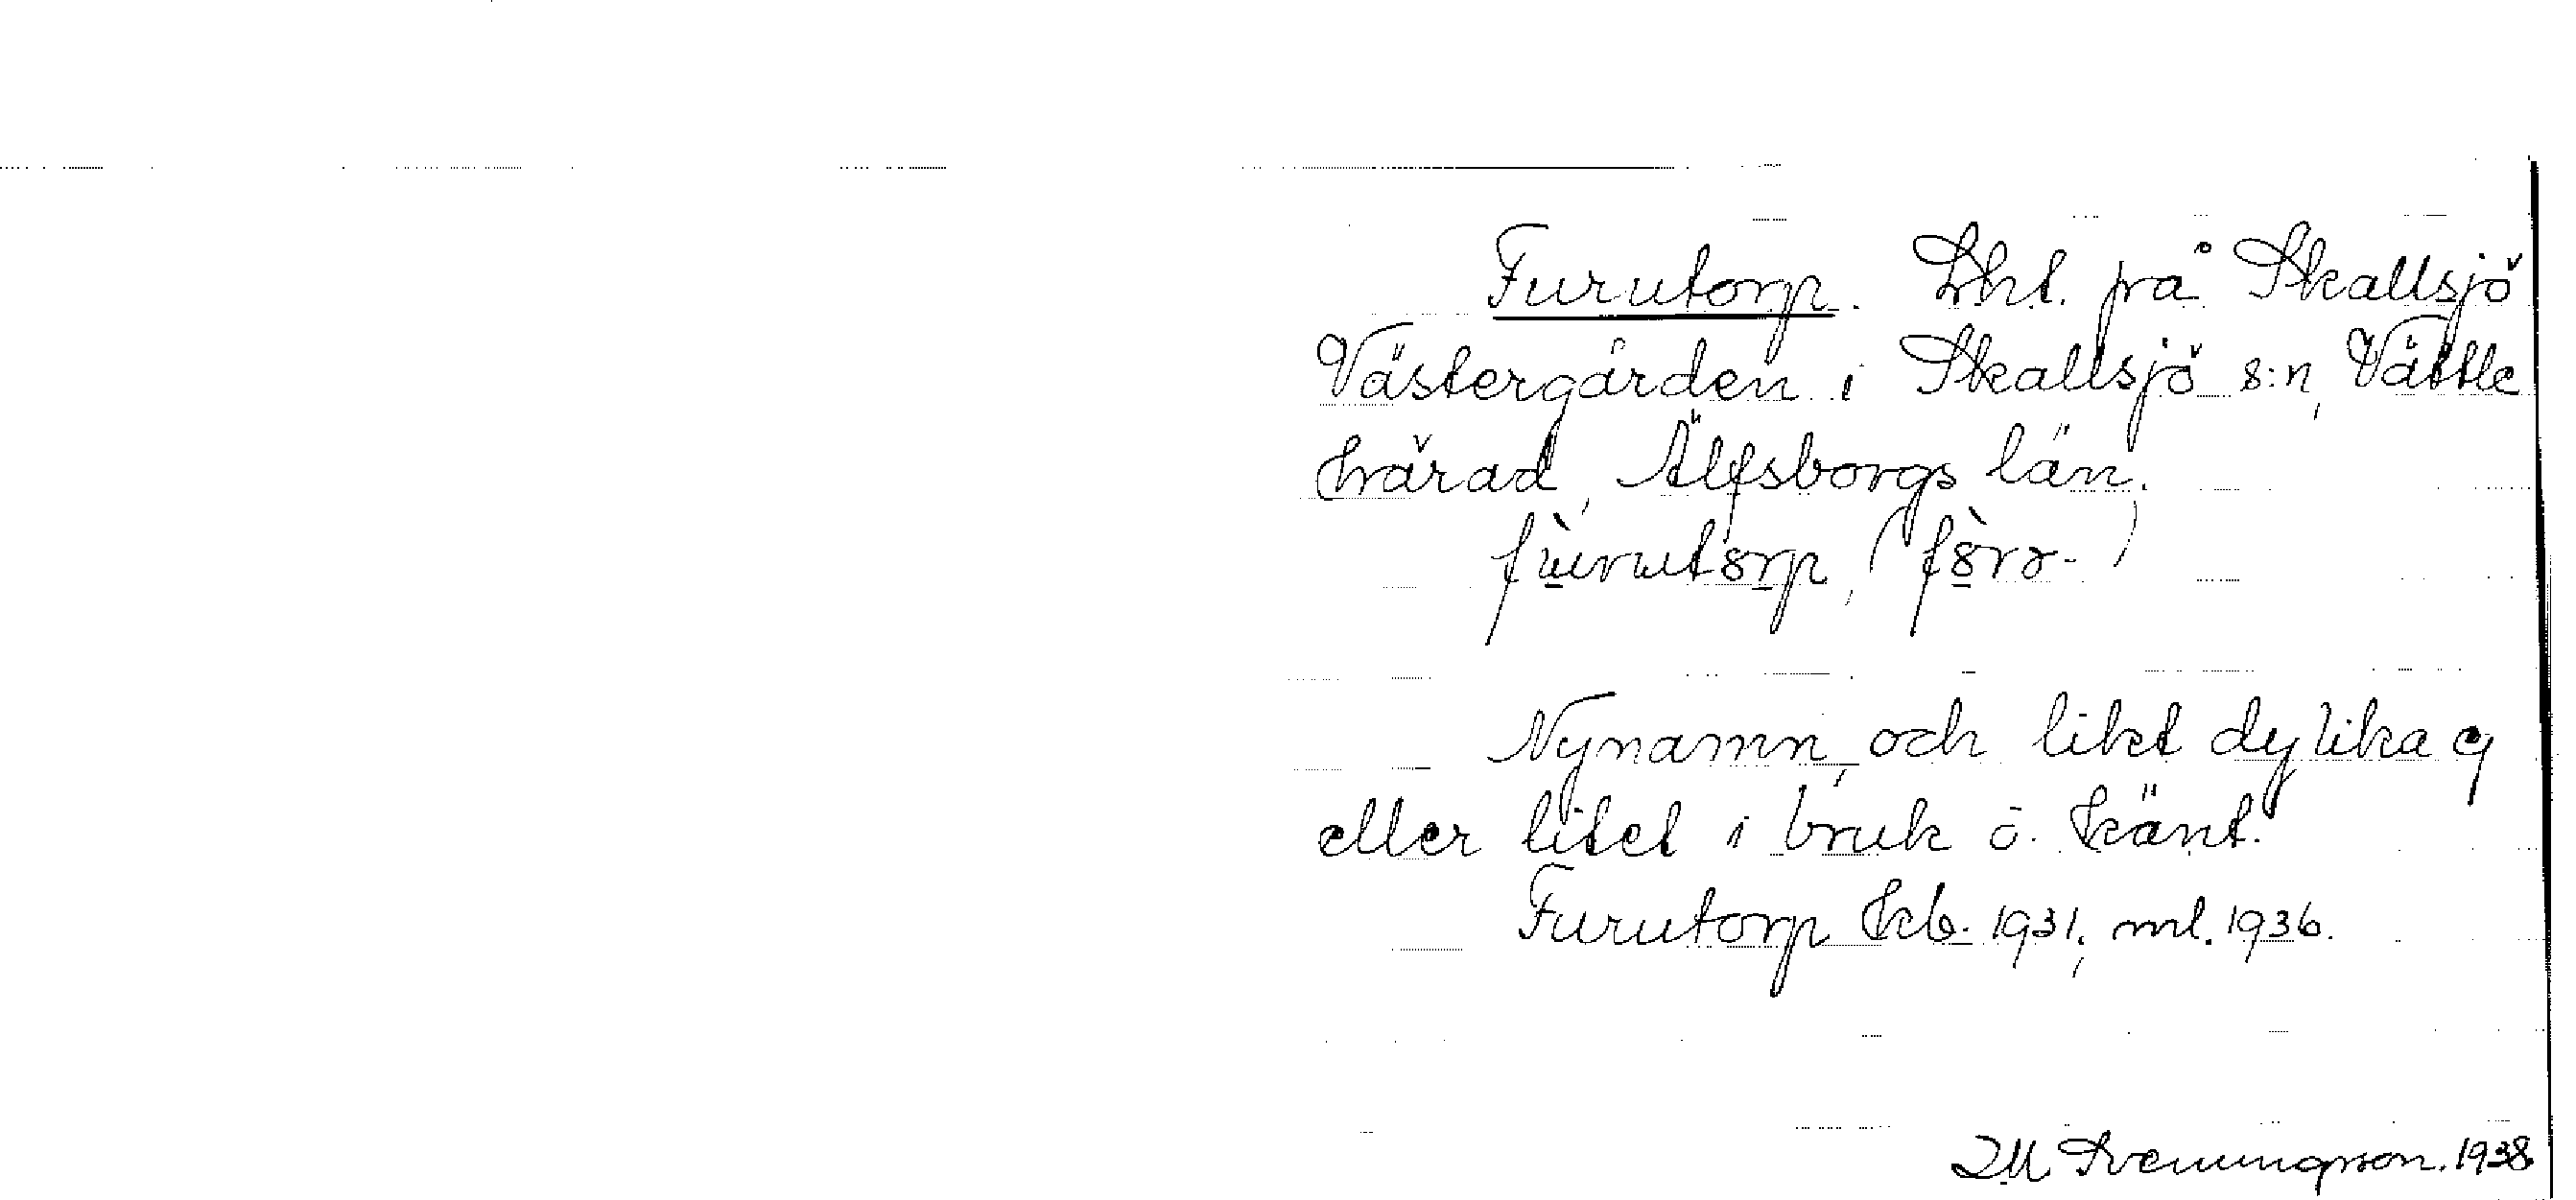 Furutorp. Lht. på Skallsjö
Västergården i Skallsjö s:n, Vättle
härad, Älfsborgs län.
Nynamn, och likt dylika ej
eller litet i bruk o. känt.
Furutorp Kb. 1931; ml. 1936.
1938